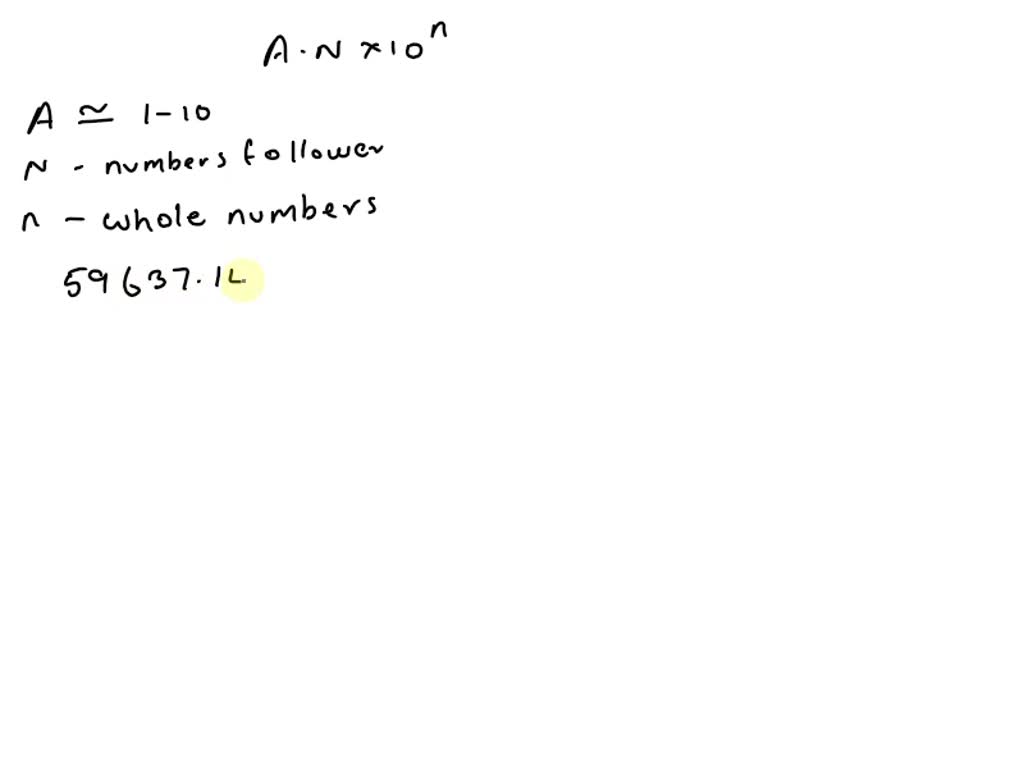 A.N ×10ⁿ
A ≃ 1-10
N - numbers follower
n - whole numbers
59637.14